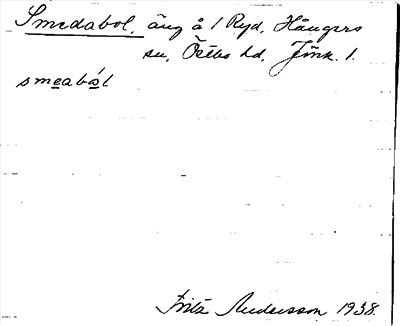 Smedabol, äng å 1 Ryd, Hångers
sn, Östbo hd, Jönk. l.
smeabål
Fritz Andersson 1938.